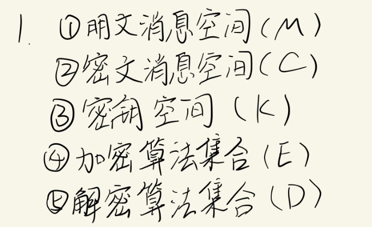 1. ①明文消息空间(M)
②密文消息空间(C)
③密钥空间(K)
④加密算法集合(E)
⑤解密算法集合(D)